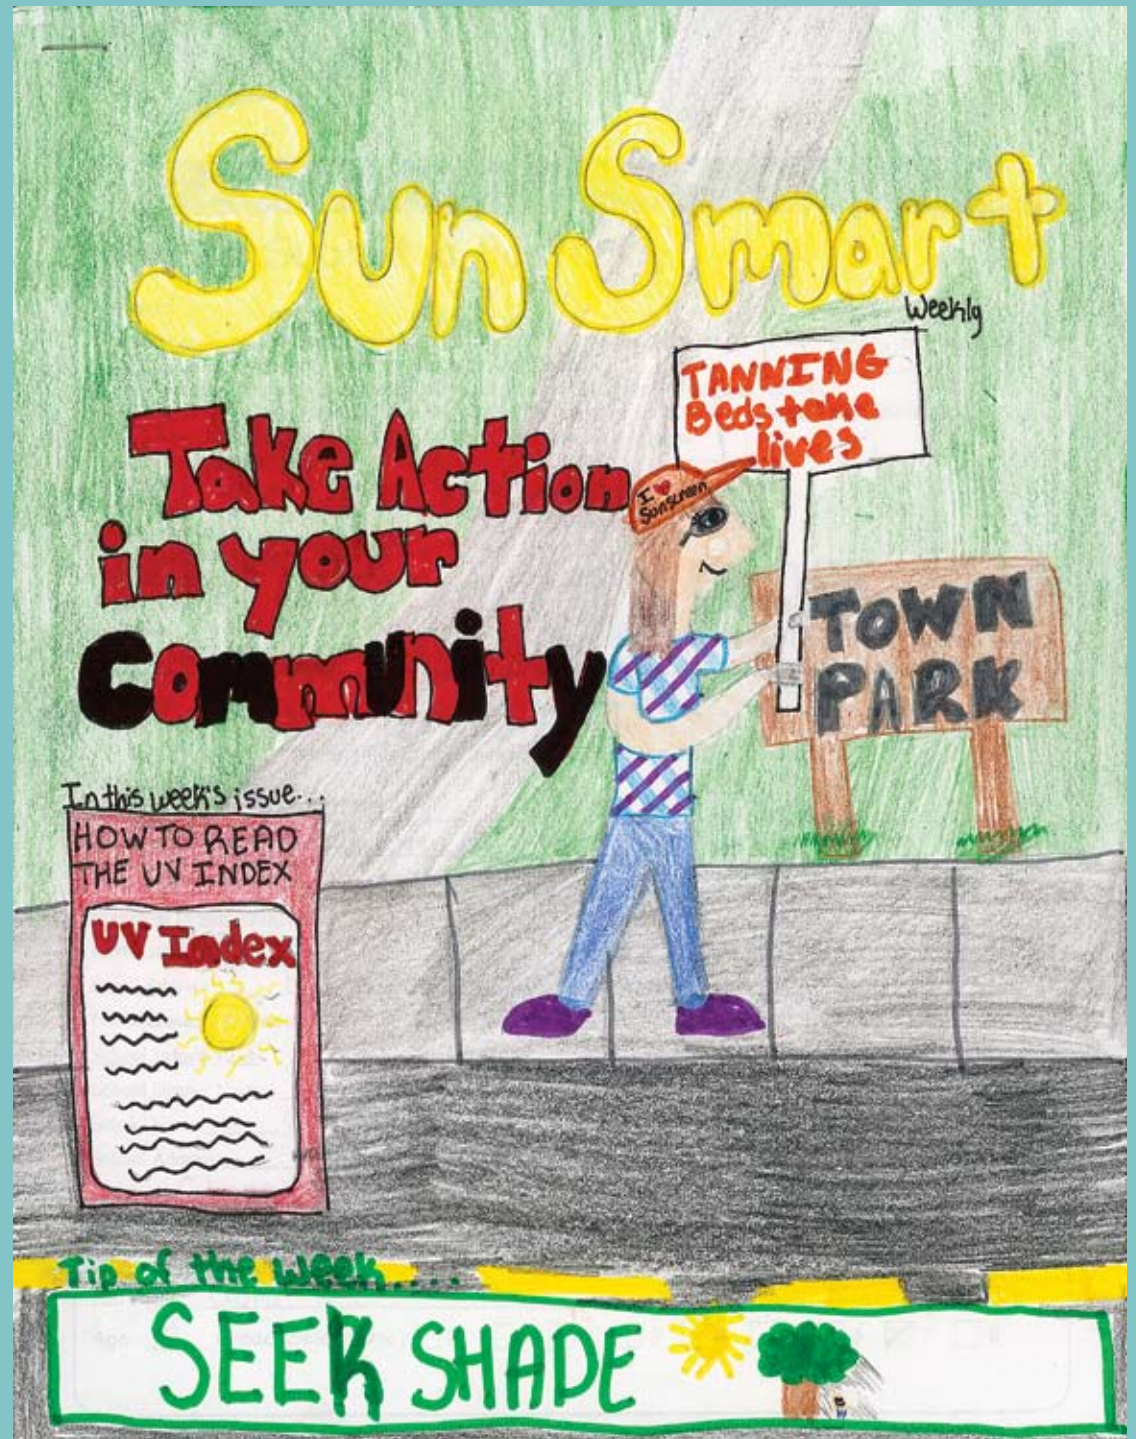 Sun Smart
Weekly
TANNING
Beds take
lives
Take Action
in your
Community
I ❤ 
Sunscreen
TOWN
PARK
In this week's issue...
HOW TO READ
THE UV INDEX
UV Index
Tip of the week....
SEEK SHADE